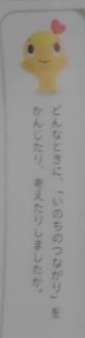 どんなときに、「いのちのつながり」を
かんじたり、考えたりしましたか。